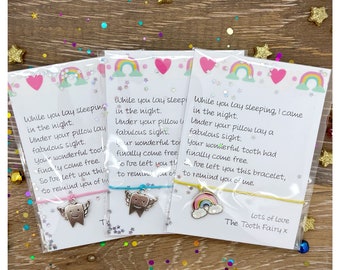 While you lay sleeping, I came
in the night.
Under your pillow lay a
fabulous sight.
Your wonderful tooth had
finally come free.
So I've left you this bracelet,
to remind you of me.
lots of love
The Tooth Fairy x
While you lay sleeping,
in the night.
Under your pillow lay
fabulous sight.
Your wonderful tooth
finally come free.
left you this
to remind you of me.
While you lay sleeping
in the night.
Under your pillow lay
fabulous sight.
Your wonderful tooth
finally come free.
left you this
to remind you of
The